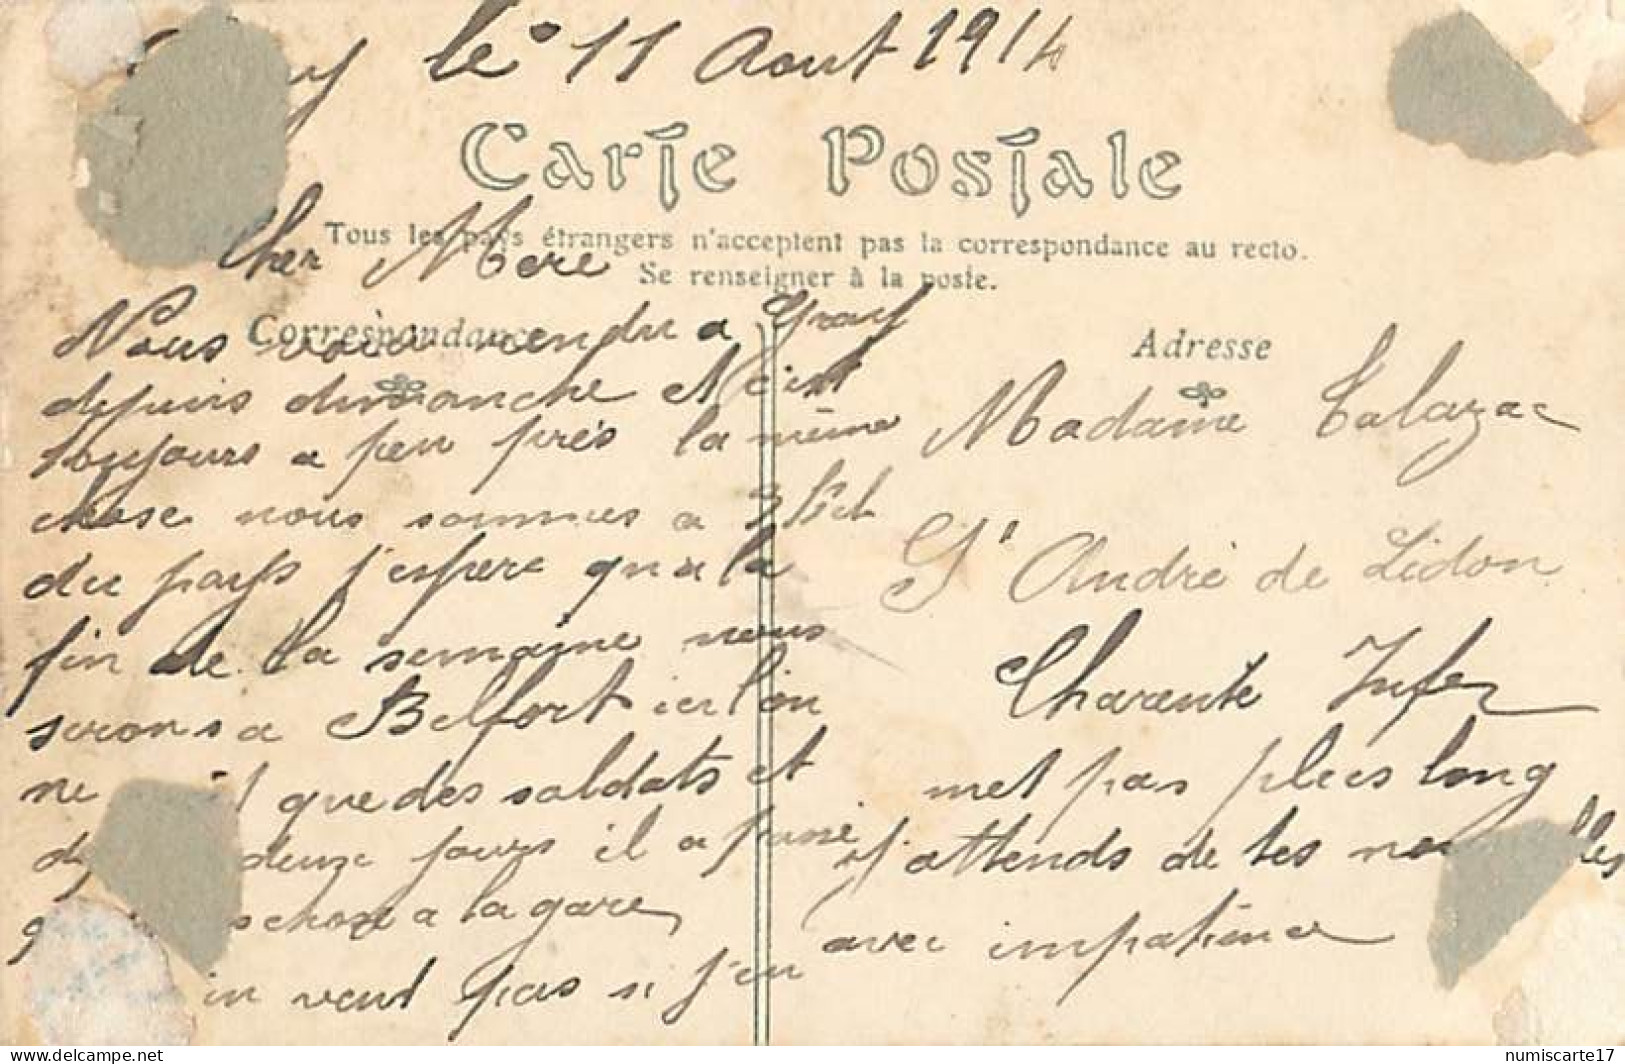 le 11 Aout 1914
Carte Postale
Tous les pays étrangers n'acceptent pas la correspondance au recto.
Se renseigner à la poste.
Cher Mere
Correspondance
Nous voici rendu a Gray
depuis dimanche et c'est
toujours a peu près la même
chose nous sommes a
du pays j'espere qu'a la
fin de la semaine nous
serons a Belfort ici l'on
ne que des soldats et
deux jours il a passé
chose a la gare
in veut pas si j'en
Adresse
Madame Talazac
St André de Lidon
Charente Infer
met pas plus long
J'attends de tes
avec impatience
numiscarte17